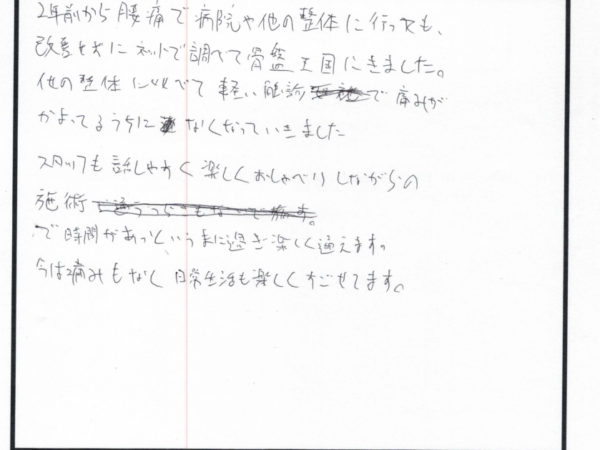 2年前から腰痛で病院や他の整体に行っても、
改善せずにネットで調べて骨盤王国にきました。
他の整体にくらべて軽い施術で痛みが
かよってるうちになくなっていきました
スタッフも話しやすく楽しくおしゃべりしながらの
施術
で時間があっというまに過ぎ楽しく通えます。
今は痛みもなく日常生活も楽しくすごせてます。